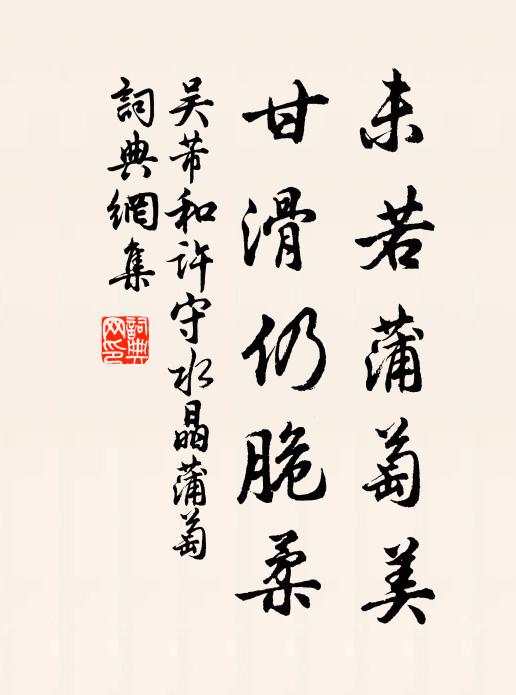 未若蒲萄美
甘滑仍脆柔
吴芾和许守水晶蒲萄
詞典網集
詞典
网印